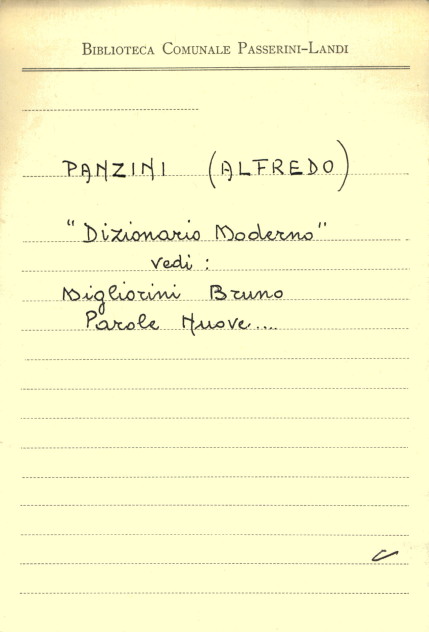 BIBLIOTECA COMUNALE PASSERINI-LANDI
PANZINI (ALFREDO)
"Dizionario Moderno"
vedi :
Migliorini Bruno
Parole Nuove....